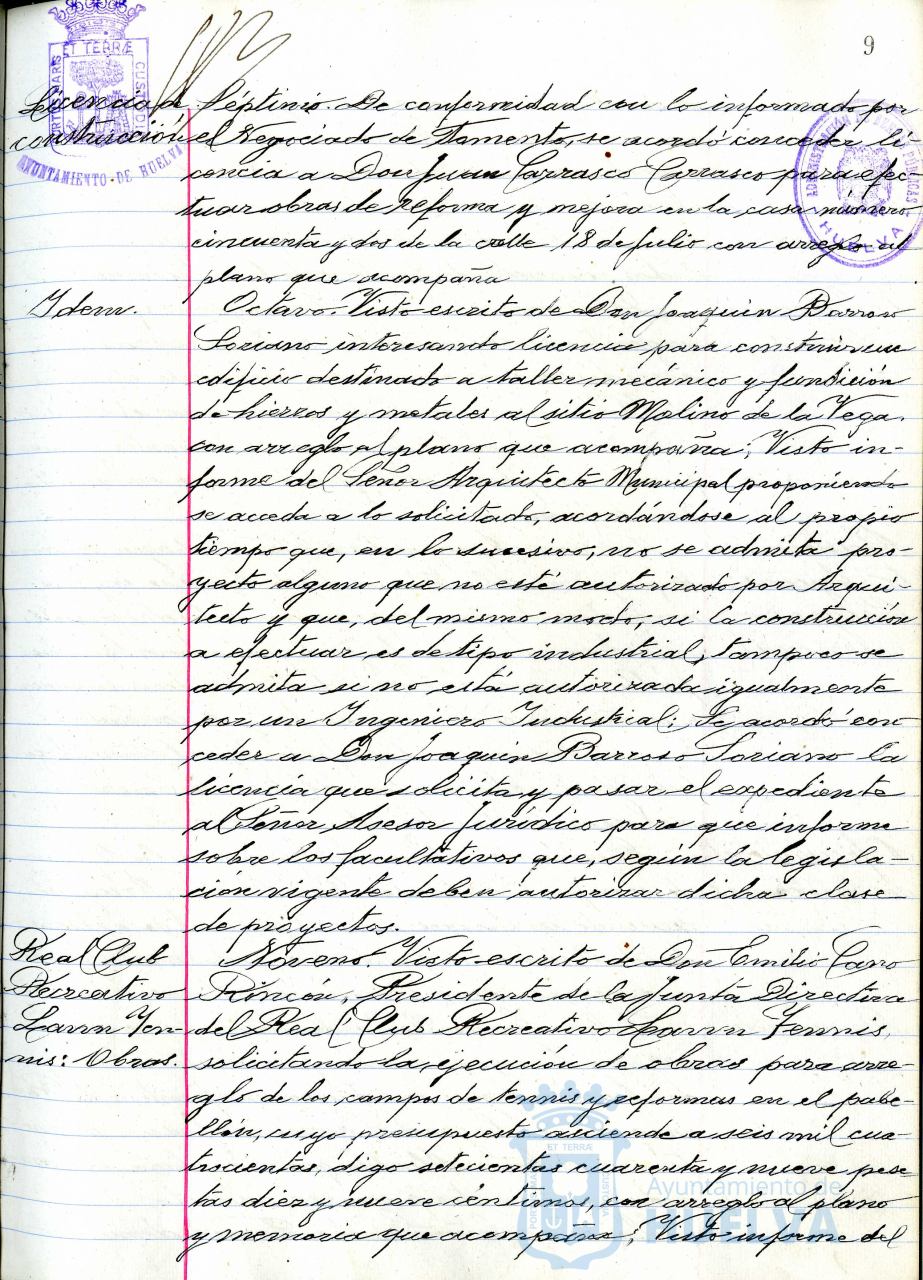 9
PORTUS MARIS ET TERRÆ CUSTODIA
AYUNTAMIENTO · DE HUELVA
HUELVA
Licencia de
construcción
Séptimo. De conformidad con lo informado por
el Negociado de Fomento, se acordó conceder li-
cencia a Don Juan Carrasco Carrasco para efec-
tuar obras de reforma y mejora en la casa número
cincuenta y dos de la calle 18 de Julio con arreglo al
plano que acompaña
Idem.
Octavo. Visto escrito de Don Joaquin Barroso
Soriano interesando licencia para construir un
edificio destinado a taller mecánico y fundición
de hierros y metales al sitio Molino de la Vega.
con arreglo al plano que acompaña; Visto in-
forme del Señor Arquitecto Municipal proponiendo
se acceda a lo solicitado, acordándose al propio
tiempo que, en lo sucesivo, no se admita pro-
yecto alguno que no esté autorizado por Arqui-
tecto y que, del mismo modo, si la construcción
a efectuar es de tipo industrial, tampoco se
admita si no está autorizada igualmente
por un Ingeniero Industrial; Se acordó con-
ceder a Don Joaquin Barroso Soriano la
licencia que solicita y pasar el expediente
al Señor Asesor Jurídico para que informe
sobre los facultativos que, según la legisla-
ción vigente deben autorizar dicha clase
de proyectos.
Real Club
Recreativo
Lawn Ten-
nis: Obras.
Noveno. Visto escrito de Don Emilio Cano
Rincón, Presidente de la Junta Directiva
del Real Club Recreativo Lawn Tennis,
solicitando la ejecución de obras para arre-
glo de los campos de tennis y reformas en el pabe-
llón, cuyo presupuesto asciende a seis mil cua-
trocientas, digo setecientas cuarenta y nueve pese-
tas diez y nueve céntimos, con arreglo al plano
y memoria que acompaña; Visto informe del
Ayuntamiento de
HUELVA